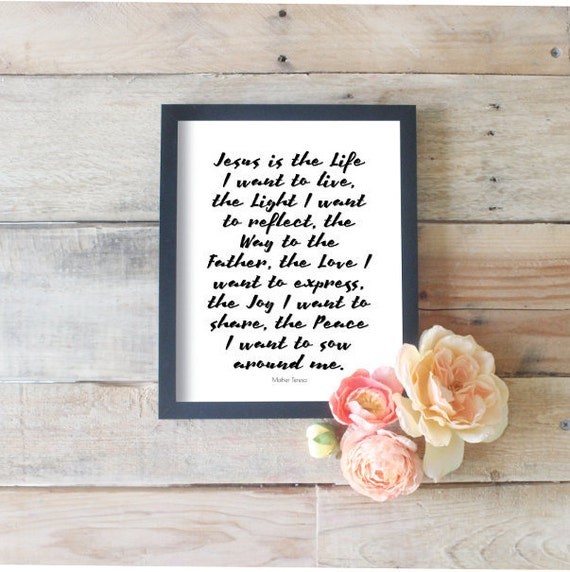 Jesus is the Life
I want to live,
the Light I want
to reflect, the
Way to the
Father, the Love I
want to express,
the Joy I want to
share, the Peace
I want to sow
around me.
Mother Teresa